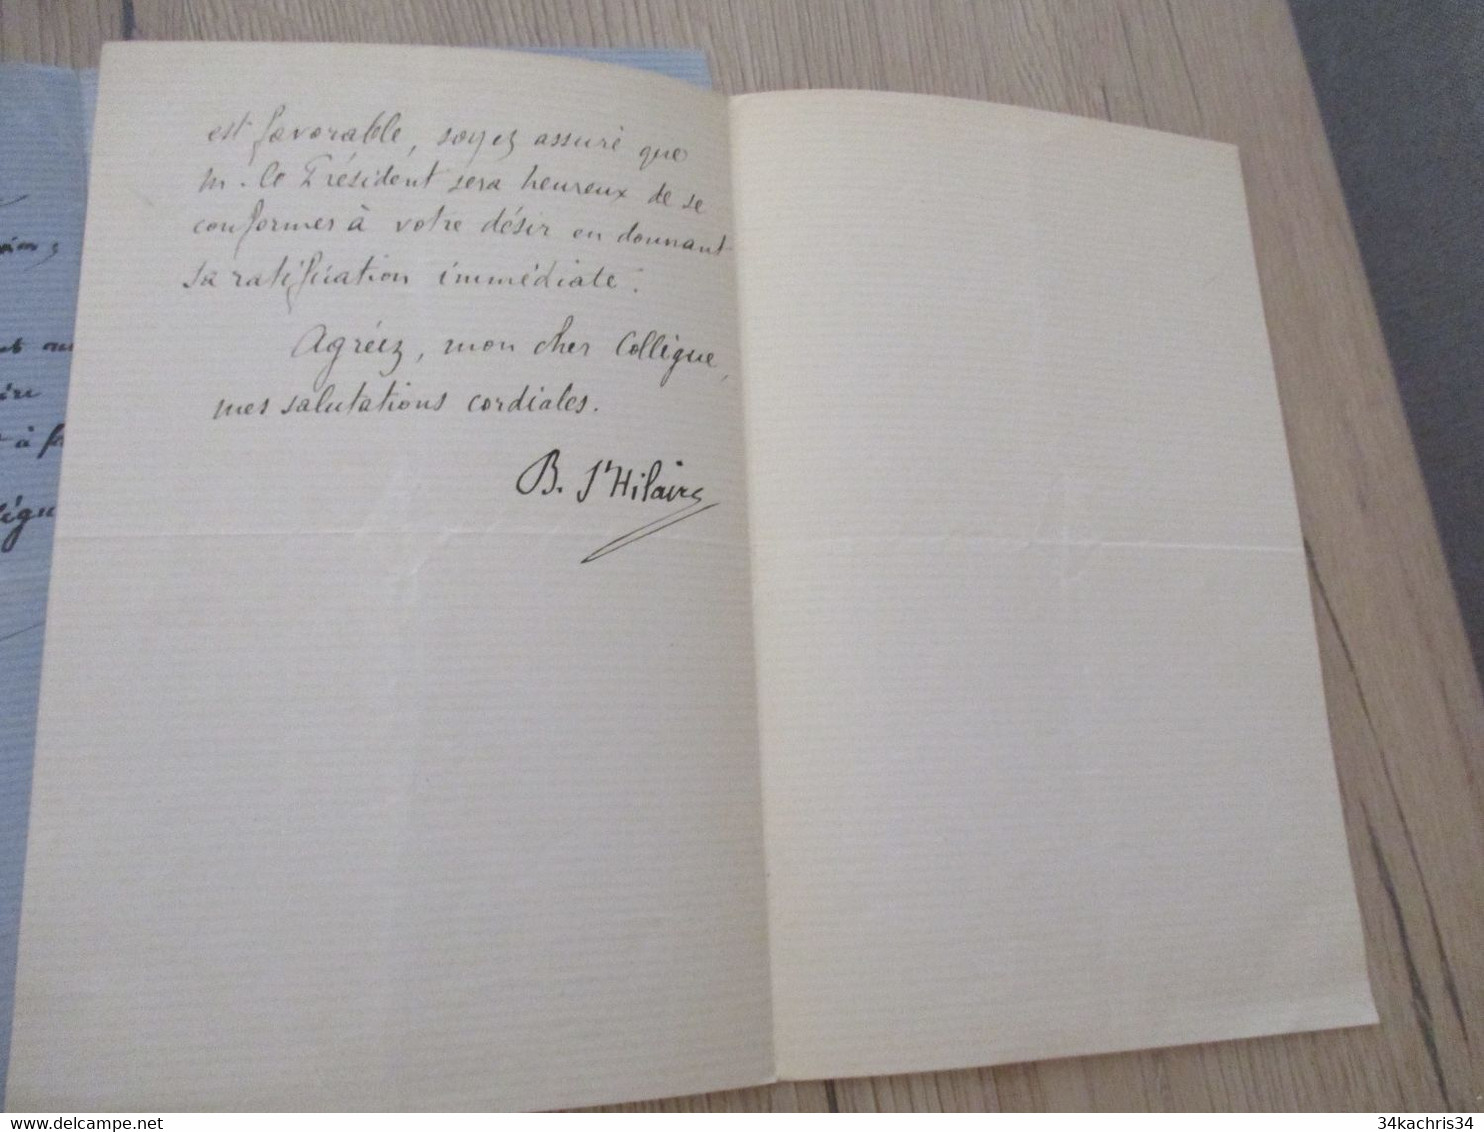 est favorable, soyez assuré que
M. le Président sera heureux de se
conformer à votre désir en donnant
sa ratification immédiate.
Agréez, mon cher Collègue,
mes salutations cordiales.
B. St Hilaire
à
34kachris34
34kachris34